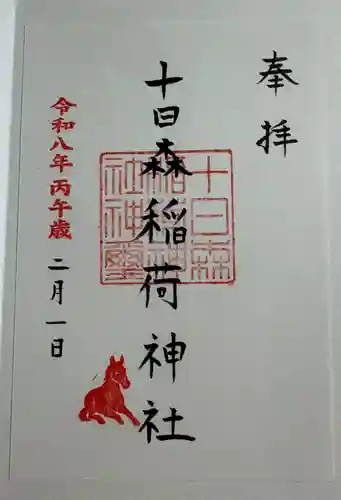 奉拝
十日森稲荷神社
十日森
稲荷神
社神璽
令和八年丙午歳
二月一日